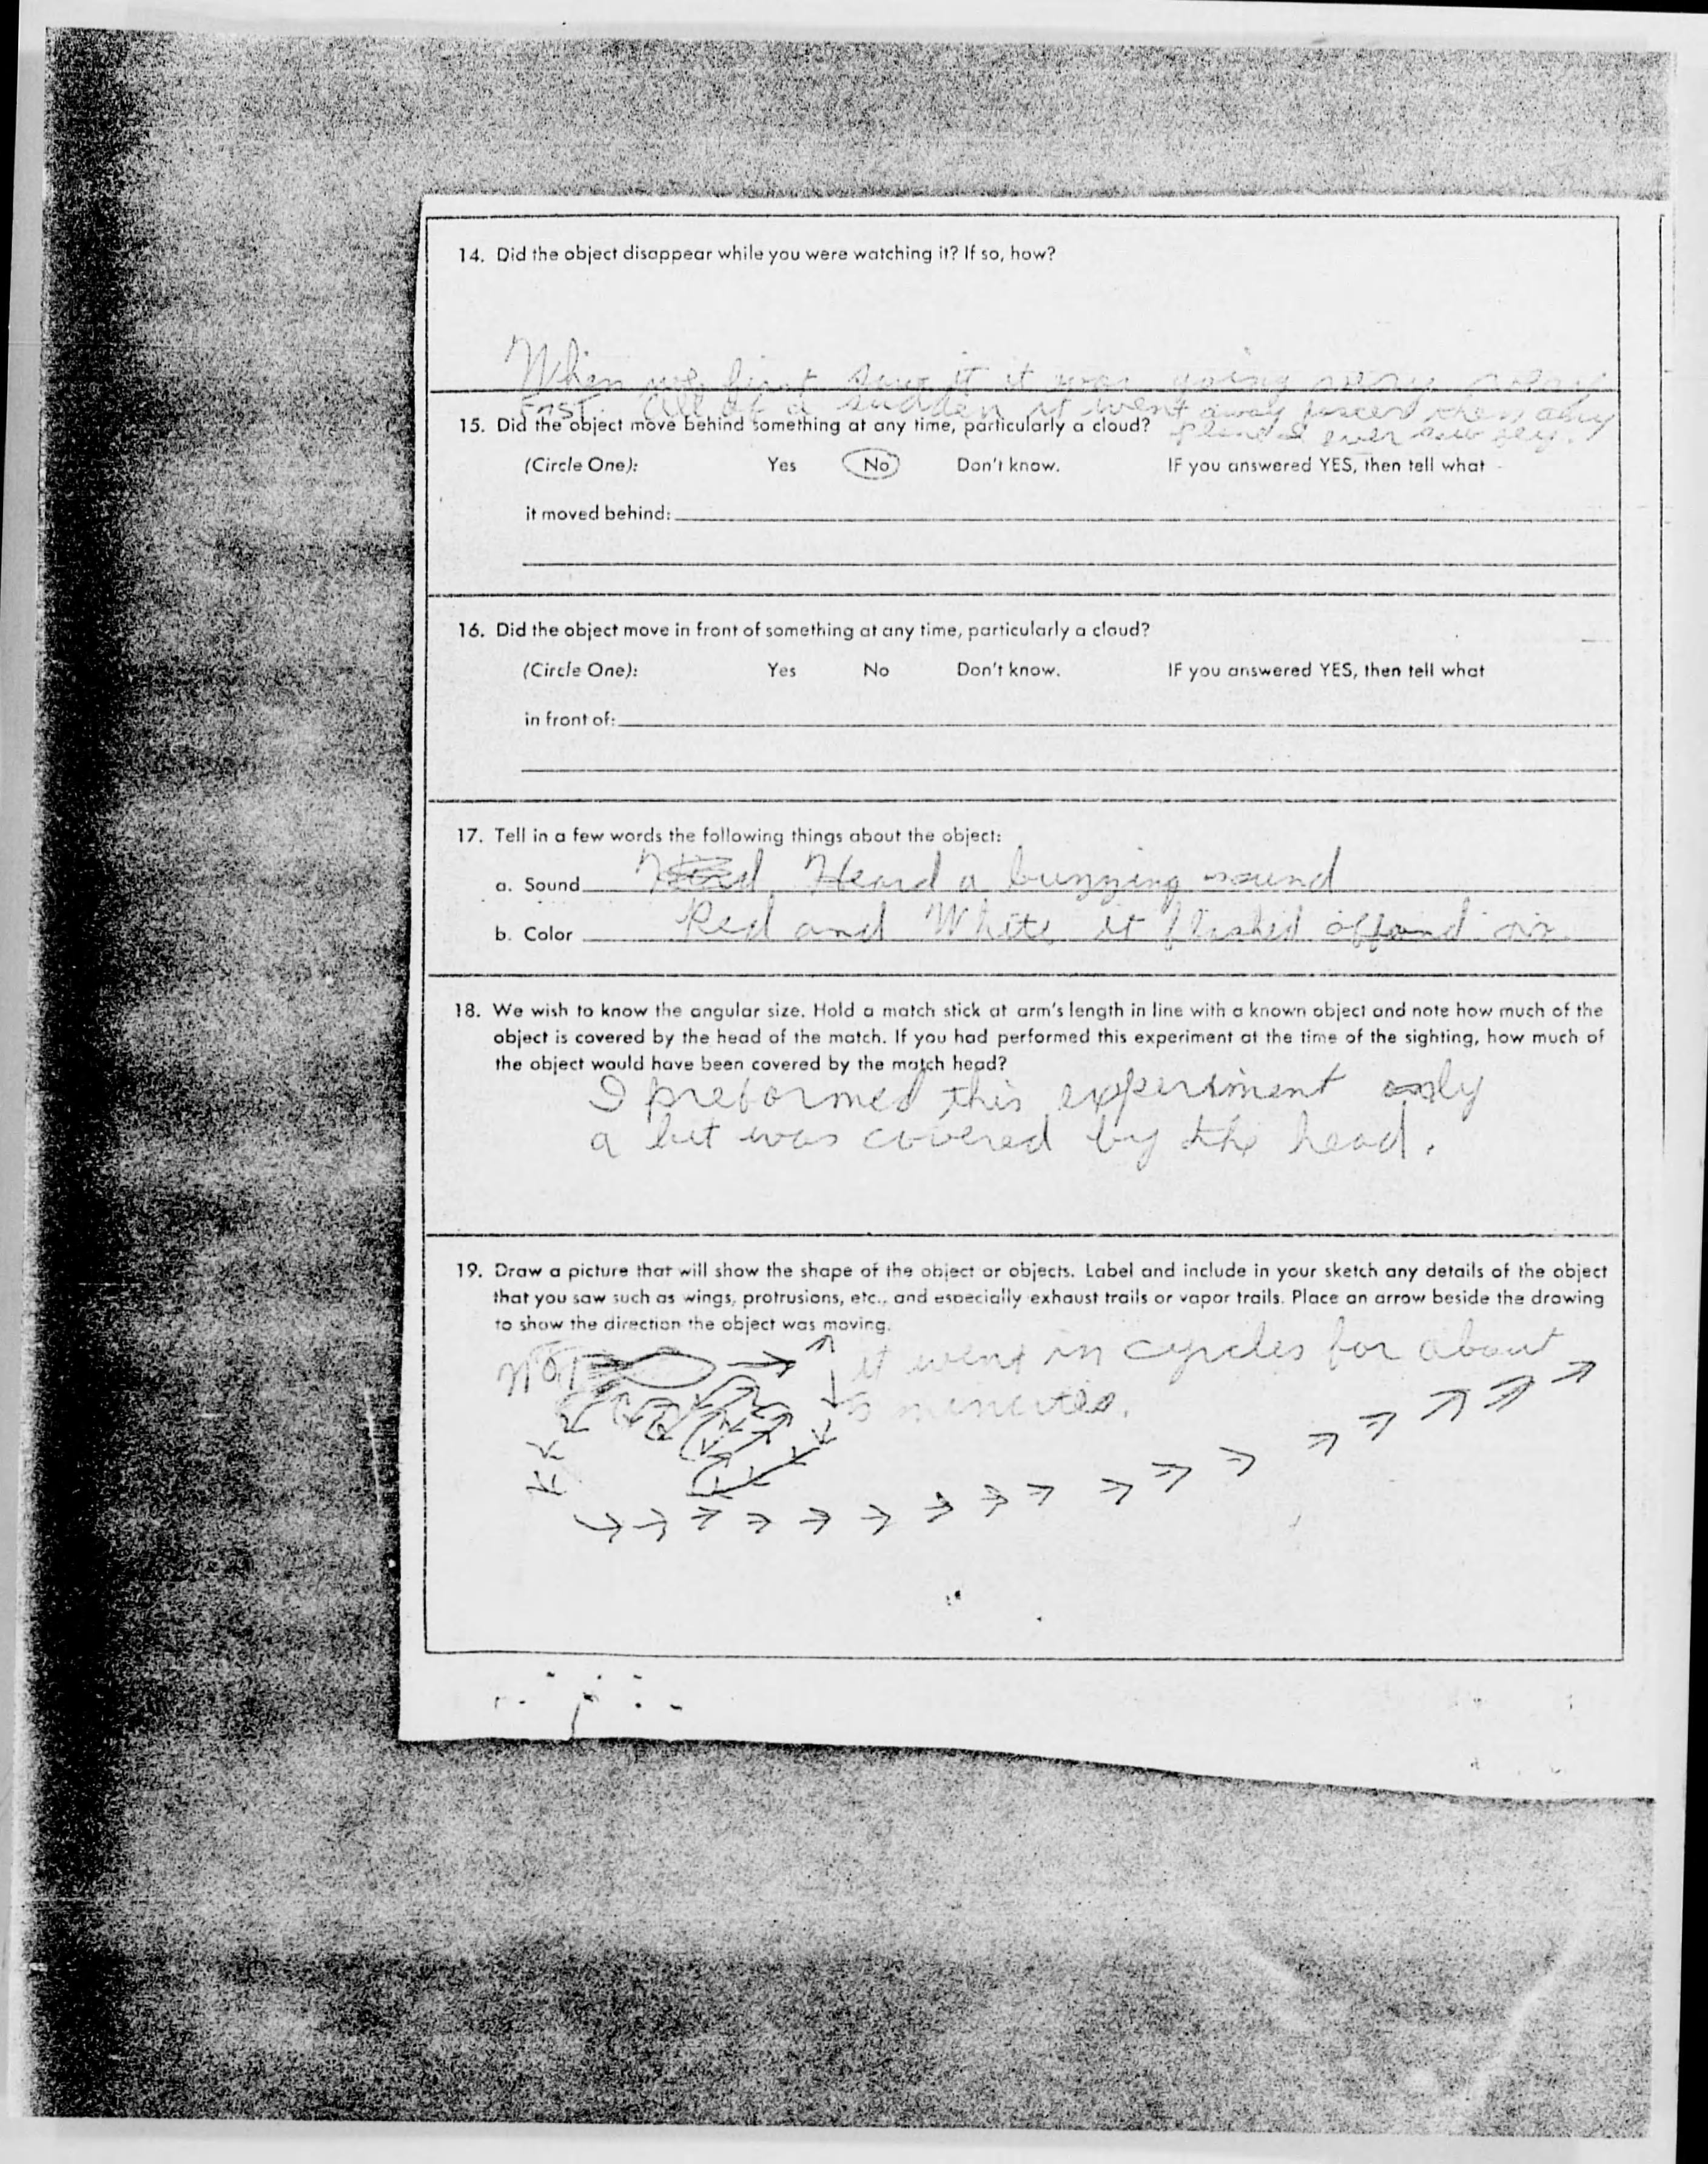 14. Did the object disappear while you were watching it? If so, how?
When we first saw it it was going very very
FAST. All of a sudden it went away faster then any
plane I ever saw
15. Did the object move behind something at any time, particularly a cloud?
(Circle One): Yes No Don't know. IF you answered YES, then tell what
it moved behind:
16. Did the object move in front of something at any time, particularly a cloud?
(Circle One): Yes No Don't know. IF you answered YES, then tell what
in front of:
17. Tell in a few words the following things about the object:
a. Sound Heard a buzzing sound
b. Color Red and White it flashed off and on
18. We wish to know the angular size. Hold a match stick at arm's length in line with a known object and note how much of the
object is covered by the head of the match. If you had performed this experiment at the time of the sighting, how much of
the object would have been covered by the match head?
I preformed this experiment only
a bit was covered by the head.
19. Draw a picture that will show the shape of the object or objects. Label and include in your sketch any details of the object
that you saw such as wings, protrusions, etc., and especially exhaust trails or vapor trails. Place an arrow beside the drawing
to show the direction the object was moving.
it went in cyrcles for about
5 minutes.